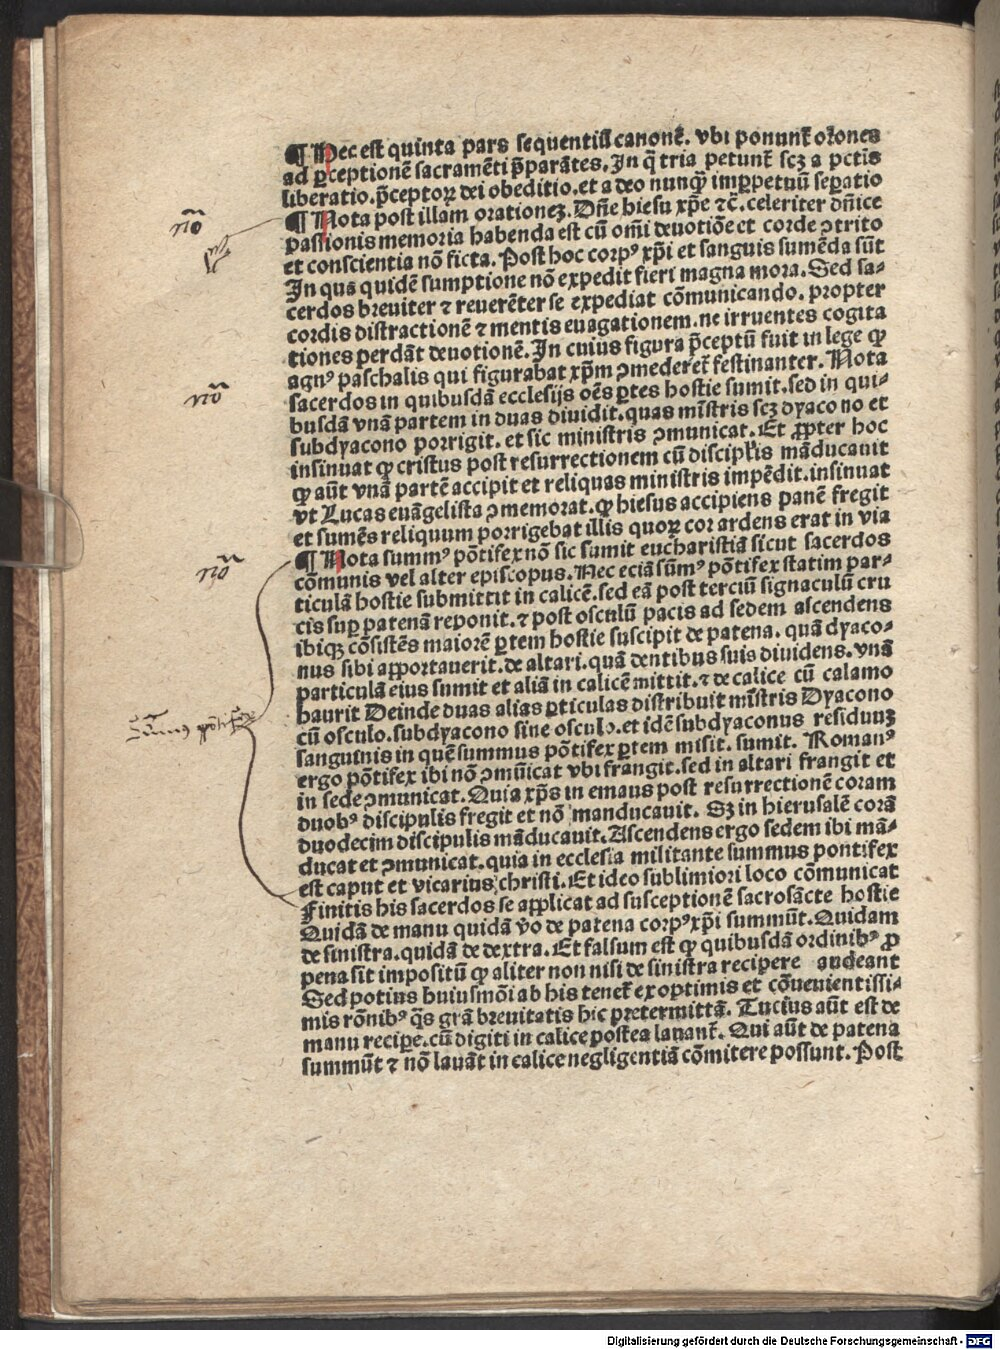 ¶ Hec est quinta pars sequentis canonē. vbi ponunt̄ or̄ones
ad ꝑceptionē sacramēti p̄parātes, In q̄ tria petunt̄ scꝫ a pctīs
liberatio. p̄ceptoꝝ dei obeditio. et a deo nunq̄Ʒimꝑpetuū seꝑatio
¶ Nota post illam orationeꝫ. Dn̄e hiesu xp̄e ⁊c̄. celeriter dn̄ice
passionis memoria habenda est cū om̄i deuotiōe et corde ꝯtrito
et conscientia nō ficta. Post hoc corpꝰ xp̄i et sanguis sumēda sūt
In qua quidē sumptione nō expedit fieri magna mora. Sed sa-
cerdos breuiter ⁊ reuerēter se expediat cōmunicando. propter
cordis distractionē ⁊ mentis euagationem. ne irruentes cogita
tiones perdāt deuotionē. In cuius figura p̄ceptū fuit in lege ꝙ
agnꝰ paschalis qui figurabat xp̄m ꝯmederet̄ festinanter. Nota
sacerdos in quibusdā ecclesijs oēs ꝑtes hostie sumit. sed in qui-
busdā vnā partem in duas diuidit. quas mīstris scꝫ dyacono et
subdyacono porrigit. et sic ministris ꝯmunicat. Et ꝓpter hoc
insinuat ꝙ cristus post resurrectionem cū discipl̄is māducauit
ꝙ aūt vnā partē accipit et reliquas ministris impēdit. insinuat
vt Lucas euāgelista ꝯmemorat. ꝙ hiesus accipiens panē fregit
et sumēs reliquum porrigebat illis quoꝝ cor ardens erat in via
¶ Nota summꝰ pōtifex nō sic sumit eucharistiā sicut sacerdos
cōmunis vel alter episcopus. Nec eciā sūmꝰ pōtifex statim par-
ticulā hostie submittit in calicē. sed eā post terciū signaculū cru
cis suꝑ patenā reponit. ⁊ post osculū pacis ad sedem ascendens
ibiqꝫ cōsistēs maiorē ꝑtem hostie suscipit de patena. quā dyaco-
nus sibi apportauerit. de altari. quā dentibus suis diuidens. vnā
particulā eius sumit et aliā in calicē mittit. ⁊ de calice cū calamo
haurit Deinde duas alias ꝑticulas distribuit mīstris Dyacono
cū osculo. subdyacono sine osculo. et idē subdyaconus residuuꝫ
sanguinis in quē summus pōtifex ꝑtem misit. sumit. Romanꝰ
ergo pōtifex ibi nō ꝯmūicat vbi frangit. sed in altari frangit et
in sede ꝯmunicat. Quia xp̄s in emaus post resurrectionē coram
duobꝰ discipulis fregit et nō manducauit. Sꝫ in hierusalē corā
duodecim discipulis māducauit. Ascendens ergo sedem ibi mā-
ducat et ꝯmunicat. quia in ecclesia militante summus pontifex
est caput et vicarius christi. Et ideo sublimiori loco cōmunicat
Finitis his sacerdos se applicat ad susceptionē sacrosācte hostie
Quidā de manu quidā v̄o de patena corpꝰ xp̄i summūt. Quidam
de sinistra. quidā de dextra. Et falsum est ꝙ quibusdā ordinibꝰ ꝓ
pena sit impositū ꝙ aliter non nisi de sinistra recipere audeant
Sed potius huiusmōi ab his tenet̄ ex optimis et cōuenientissi-
mis rōnibꝰ q̄s grā breuitatis hic pretermittā. Tucius aūt est de
manu recipe. cū digiti in calice postea lauant̄. Qui aūt de patena
summūt ⁊ nō lauāt in calice negligentiā cōmitere possunt. Post
nō
nō
nō
Sūmꝰ pōtifex
Digitalisierung gefördert durch die Deutsche Forschungsgemeinschaft - DFG